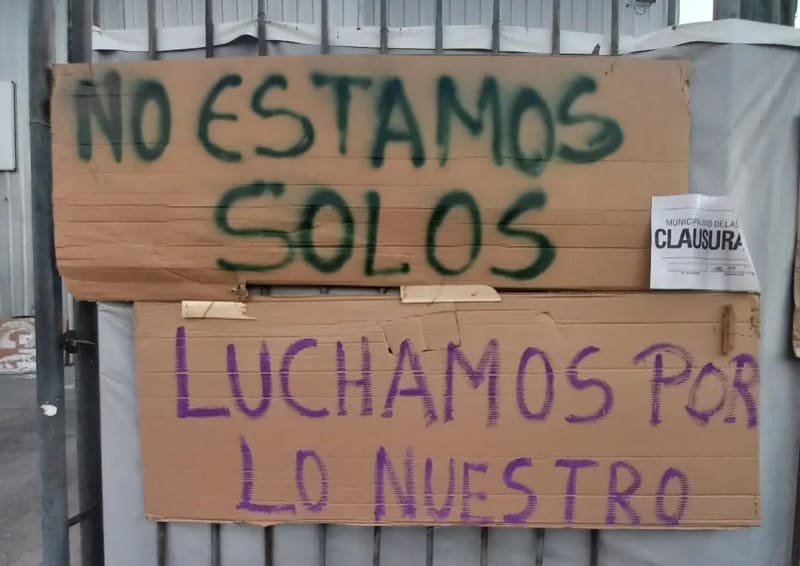 NO ESTAMOS
SOLOS
MUNICIPALIDAD DE LAS
CLAUSURA
LUCHAMOS POR
LO NUESTRO